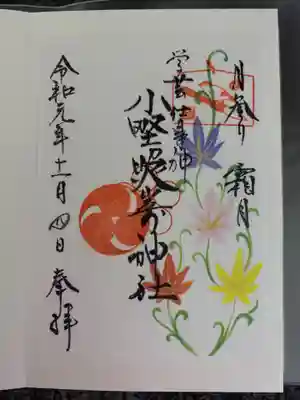 月参り 霜月
学芸仕事神
小野照崎神社
令和元年十一月四日 奉拝